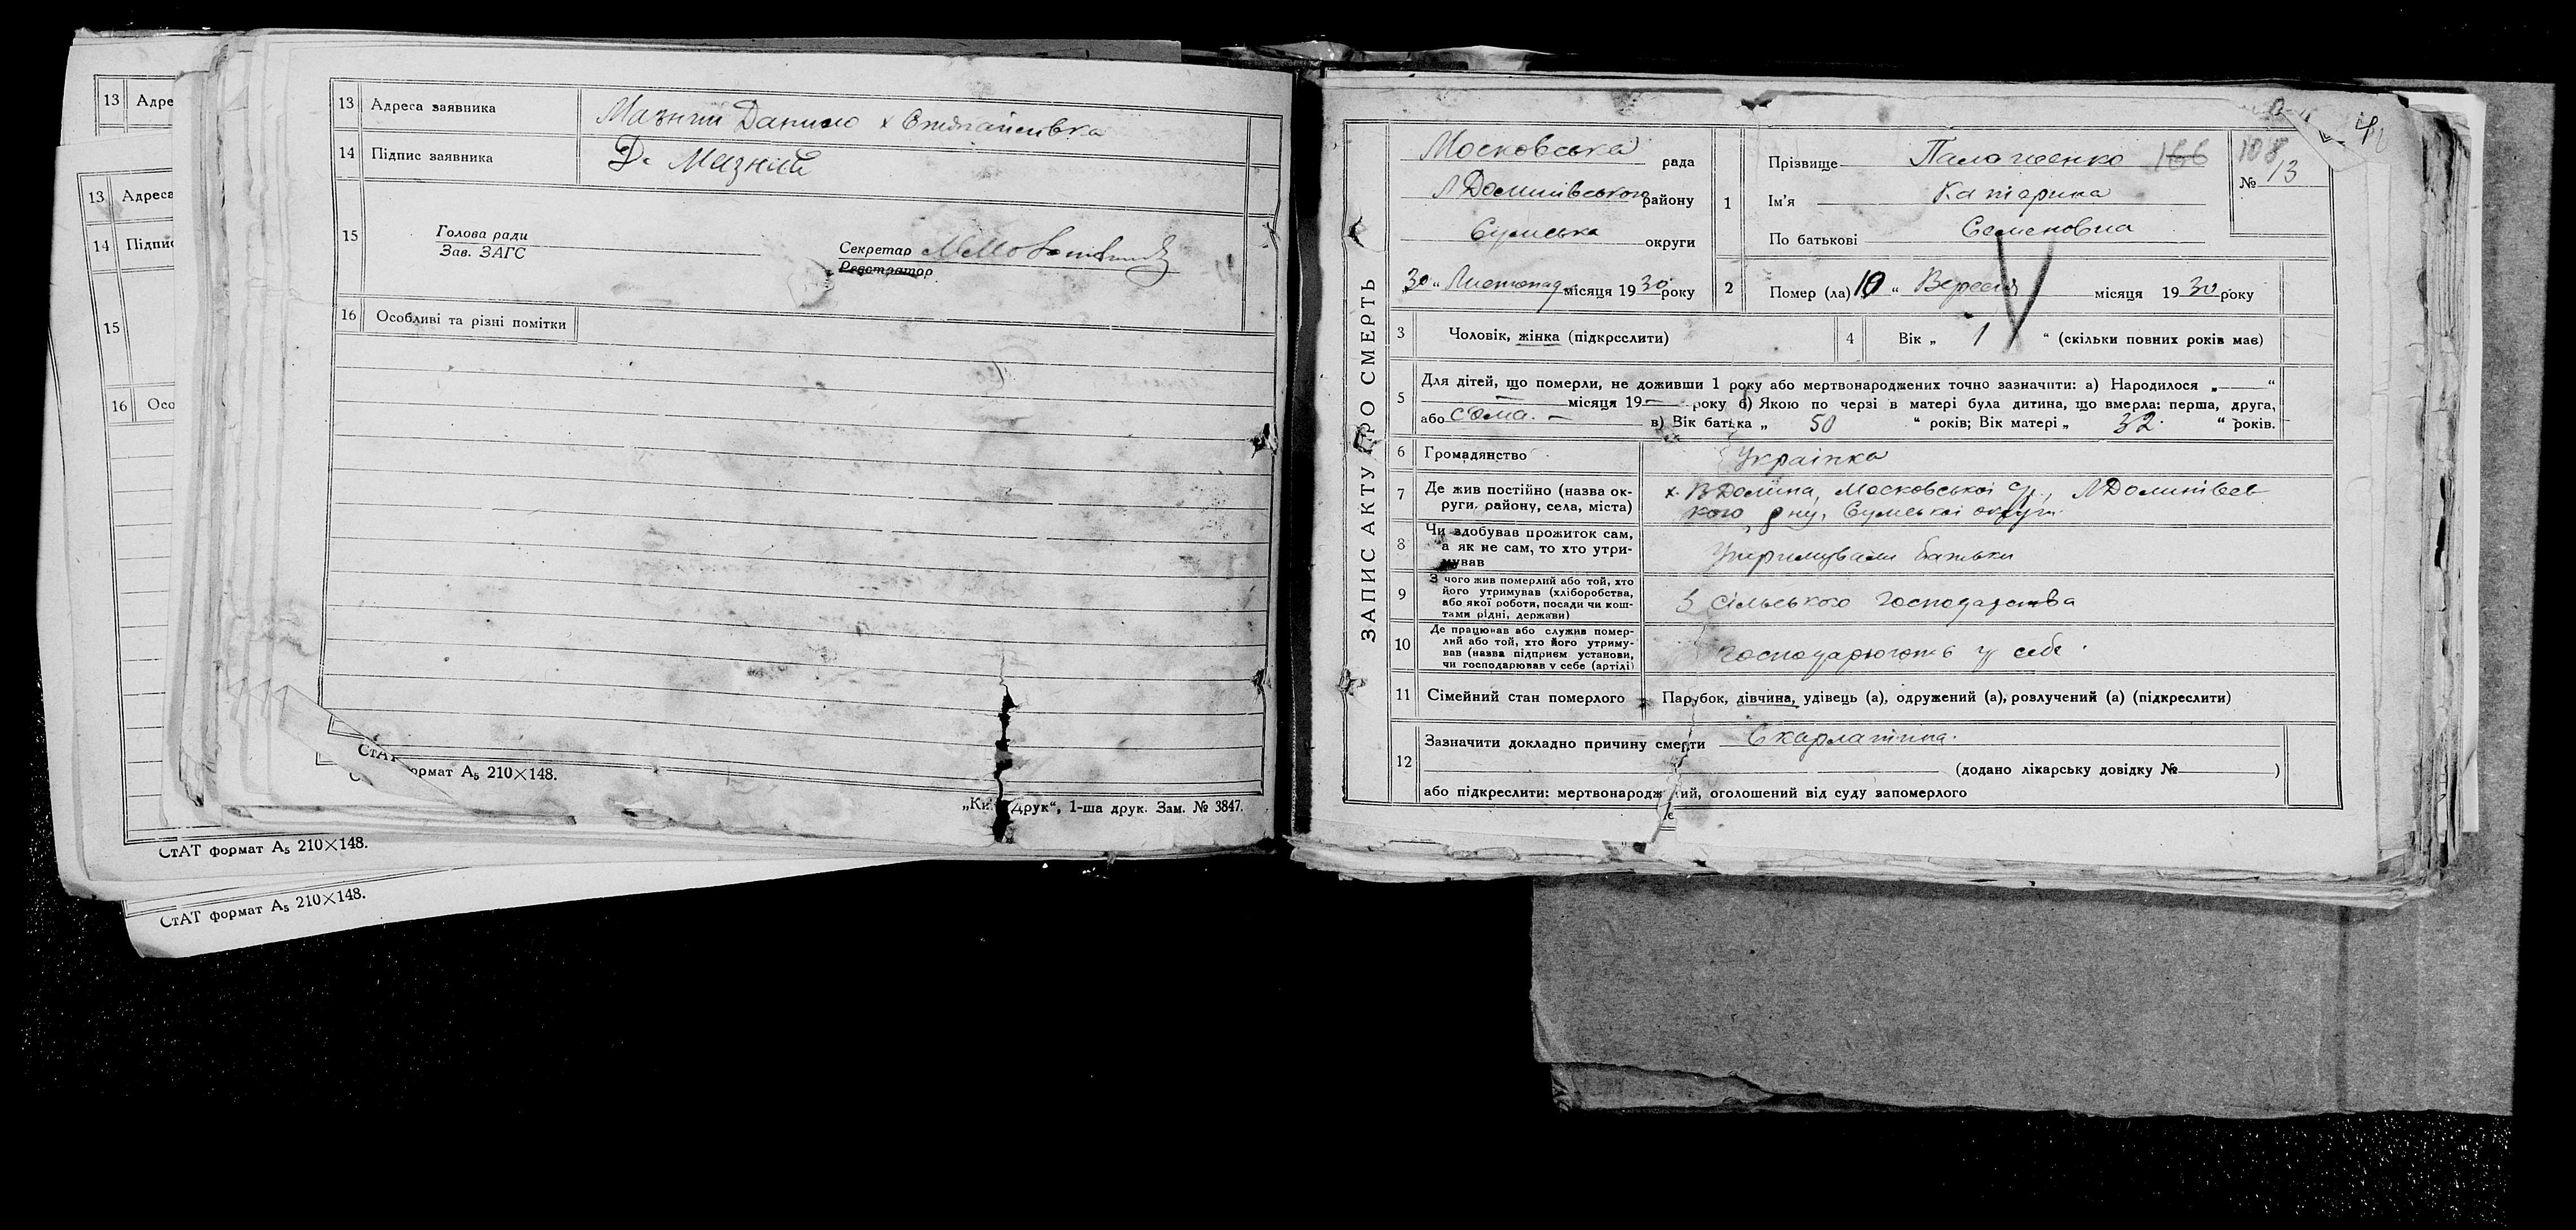 13 Адре
13 Адреса
14 Підпис
15
16 Осо
СтАТ формат А₅ 210×148.
СтАТ формат А₅ 210×148.
13 Адреса заявника Мазний Данило х Степанівка
14 Підпис заявника Д. Мазний
15 Голова ради
Зав. ЗАГС
Секретар
Реєстратор
16 Особливі та різні помітки
СтАТ
формат А₅ 210×148.
„Ки Друк“, 1-ша друк. Зам. № 3847.
ЗАПИС АКТУ ПРО СМЕРТЬ
Московська рада
району
Сумська округи
„30“ Листопад місяця 1930 року
1 Прізвище 166
Ім'я Катерина
По батькові Семеновна
108
№ 13
2 Помер (ла) 10 “ Вересня місяця 1930 року
3 Чоловік, жінка (підкреслити)
4 Вік „ 1 “ (скільки повних років має)
5 Для дітей, що померли, не доживши 1 року або мертвонароджених точно зазначити: а) Народилося „ — “
— місяця 19 — року б) Якою по черзі в матері була дитина, що вмерла: перша, друга,
або сьома. — в) Вік батька „ 50 “ років; Вік матері „ 32 “ років.
6 Громадянство Українка
7 Де жив постійно (назва ок-
руги, району, села, міста)
х. В Долина, Московської с/р, ЛДолинівсь
кого р ну, Сумської округи
8 Чи здобував прожиток сам,
а як не сам, то хто утри-
мував
Утримували батьки
9 З чого жив померлий або той, хто
його утримував (хліборобства,
або якої роботи, посади чи кош-
тами рідні, держави)
З сільського господарства
10 Де працював або служив помер-
лий або той, хто його утриму-
вав (назва підприєм установи,
чи господарював у себе (артілі)
господарюють у себе
11 Сімейний стан померлого Парубок, дівчина, удівець (а), одружений (а), розлучений (а) (підкреслити)
12 Зазначити докладно причину смерти Скарлатина.
(додано лікарську довідку № )
або підкреслити: мертвонароджений, оголошений від суду запомерлого